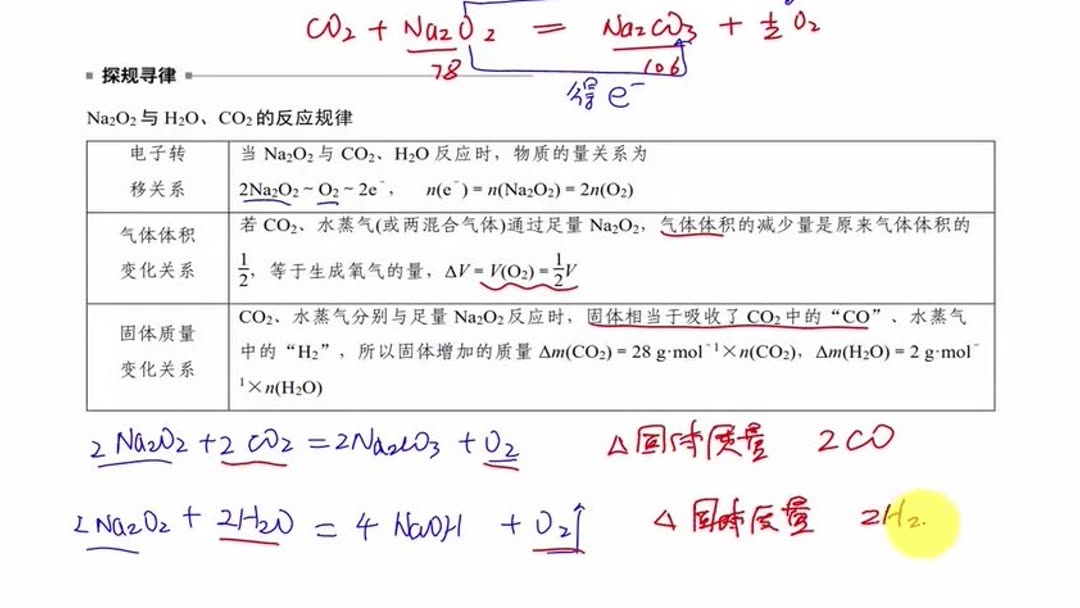 CO₂ + Na₂O₂ = Na₂CO₃ + ½ O₂
78 106
得 e⁻
探规寻律
Na₂O₂与H₂O、CO₂的反应规律
电子转移关系
当 Na₂O₂与 CO₂、H₂O 反应时，物质的量关系为
2Na₂O₂ ~ O₂ ~ 2e⁻， n(e⁻) = n(Na₂O₂) = 2n(O₂)
气体体积变化关系
若 CO₂、水蒸气(或两混合气体)通过足量 Na₂O₂，气体体积的减少量是原来气体体积的
1/2，等于生成氧气的量，ΔV = V(O₂) = 1/2V
固体质量变化关系
CO₂、水蒸气分别与足量 Na₂O₂反应时，固体相当于吸收了 CO₂中的“CO”、水蒸气
中的“H₂”，所以固体增加的质量 Δm(CO₂) = 28 g·mol⁻¹×n(CO₂)，Δm(H₂O) = 2 g·mol⁻
¹×n(H₂O)
2Na₂O₂ + 2CO₂ = 2Na₂CO₃ + O₂ △固体质量 2CO
2Na₂O₂ + 2H₂O = 4NaOH + O₂↑ △固体质量 2H₂